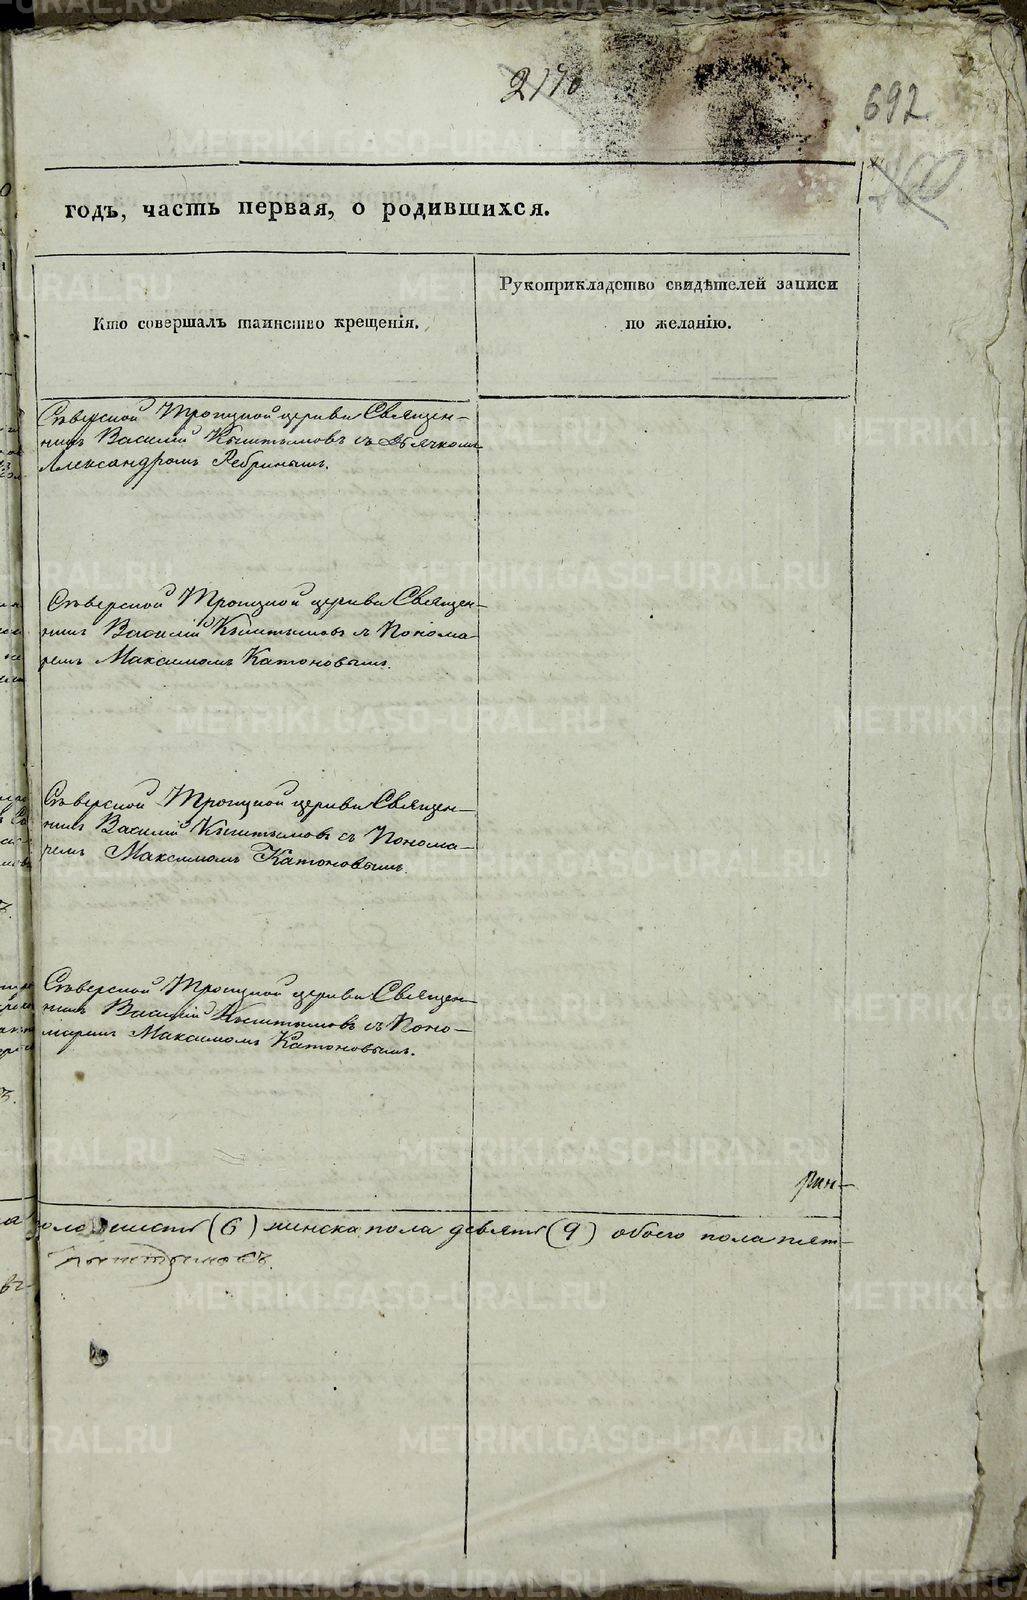 692
годъ, часть первая, о родившихся.
Кто совершалъ таинство крещенія.
Рукоприкладство свидѣтелей записи
по желанію.
Сѣверской Троицкой церкви Священ-
никъ Василій Кыштымовъ съ Дьячкомъ
Александромъ Ребринымъ.
Сѣверской Троицкой церкви Священ-
никъ Василій Кыштымовъ съ Понома-
ремъ Максимомъ Катоновымъ.
Сѣверской Троицкой церкви Священ-
никъ Василій Кыштымовъ съ Понома-
ремъ Максимомъ Катоновымъ.
Сѣверской Троицкой церкви Священ-
никъ Василій Кыштымовъ съ Поно-
маремъ Максимомъ Катоновымъ.
шесть (6) женска пола девять (9) обоего пола пят-
Кыштымовъ.
METRIKI.GASO-URAL.RU